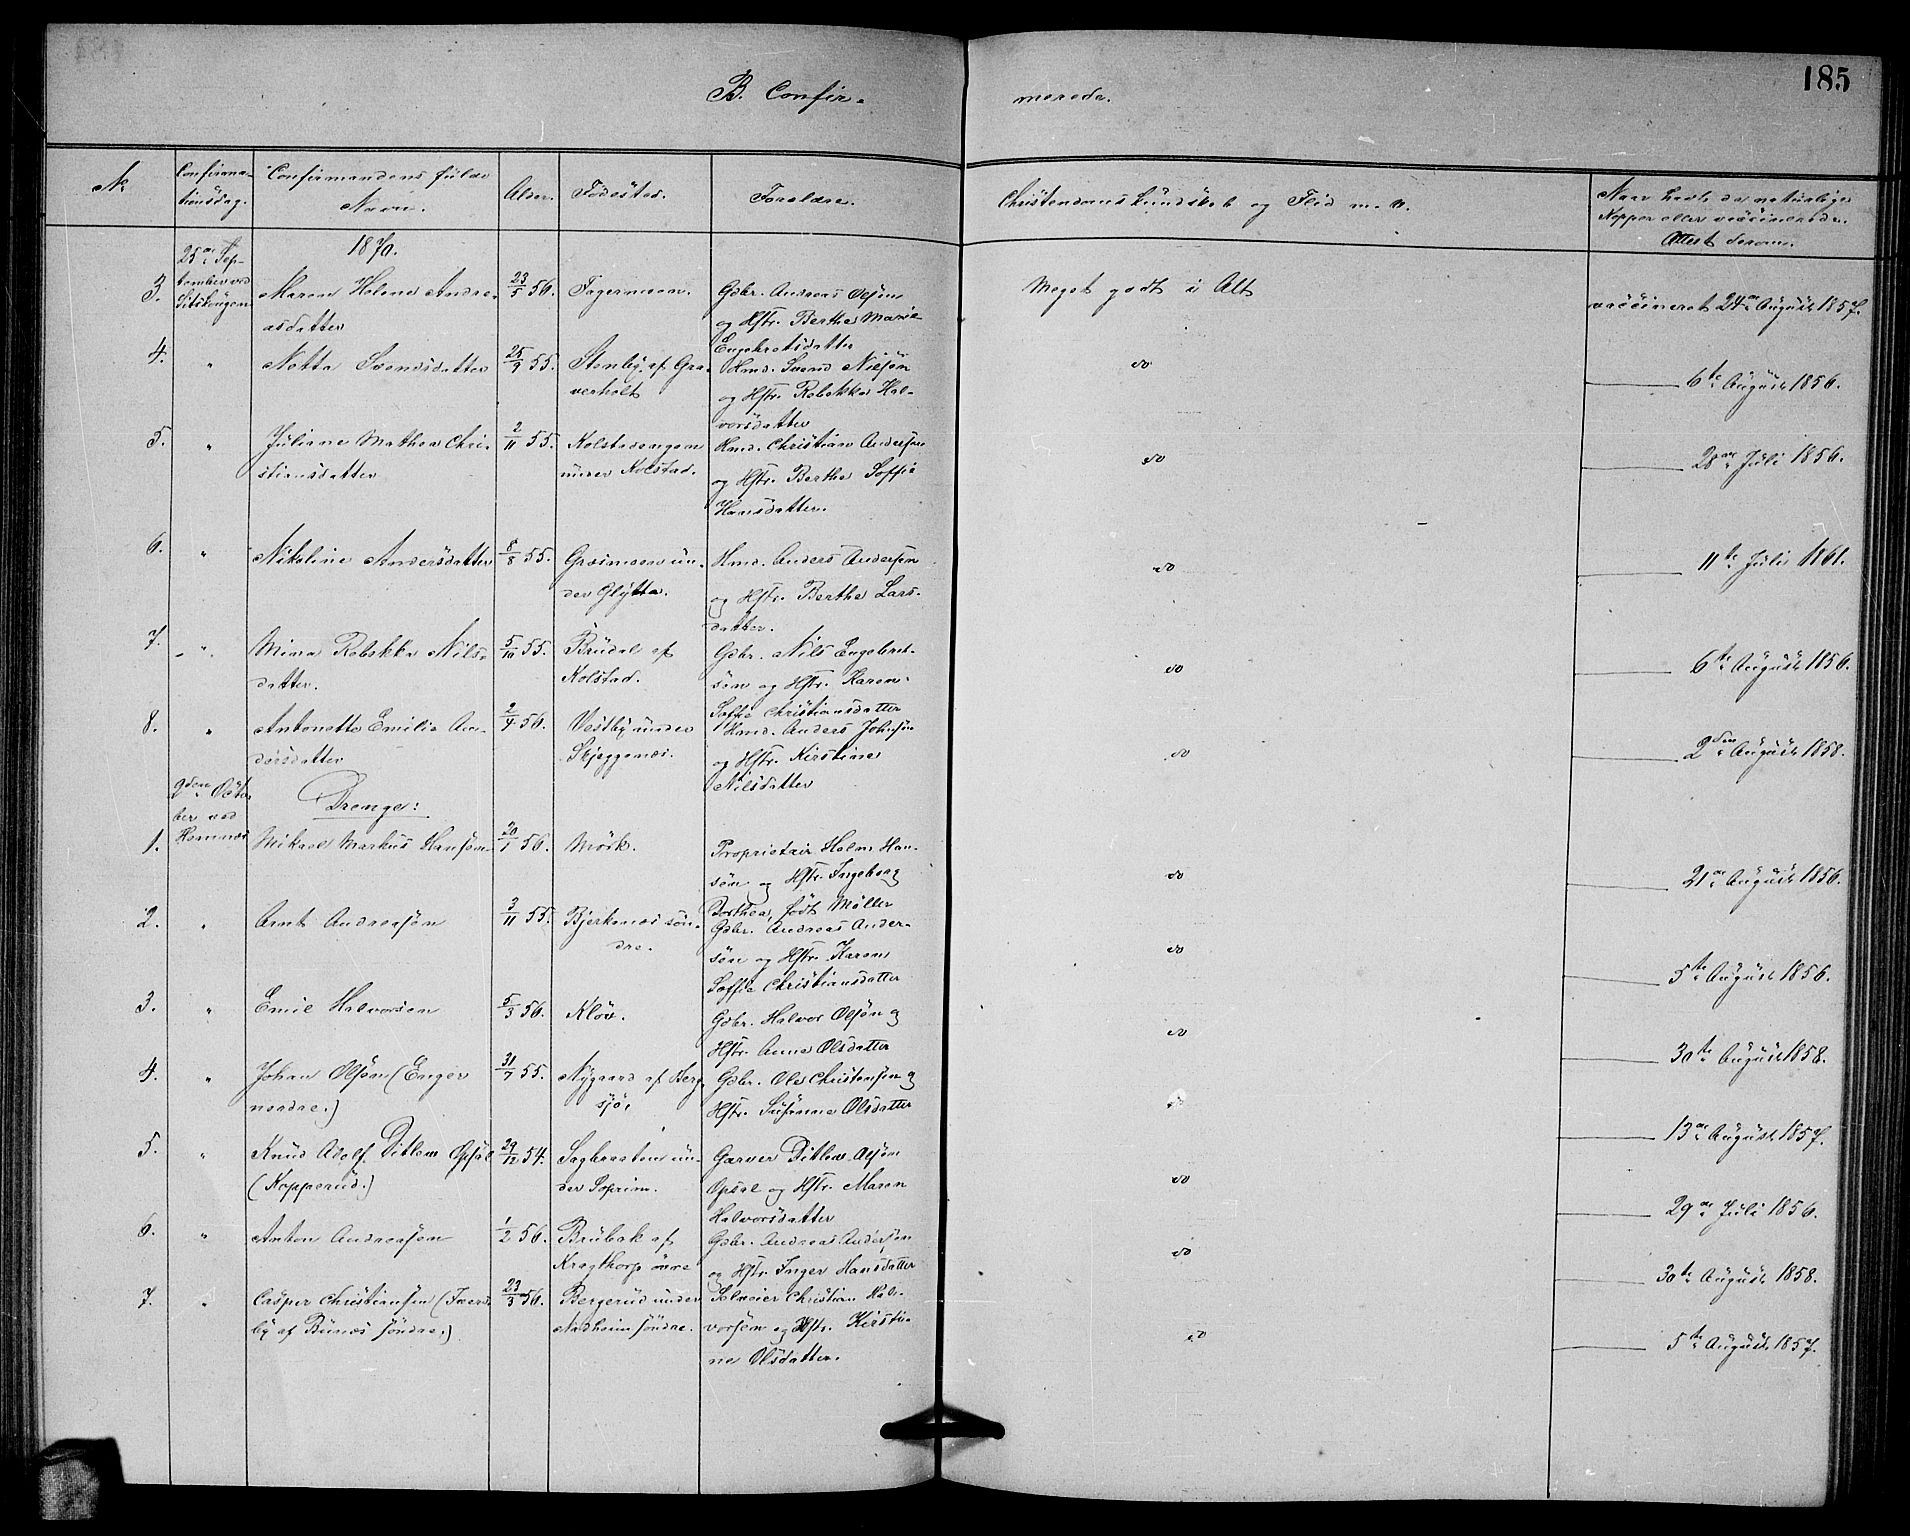 185
B. Confir-
merede.
No
Confirma-
tionsdag.
Confirmandens fulde
Navn.
Alder.
Fødested.
Forældre.
Christendomskundskab og Flid m. v.
Naar havt de naturlige
Kopper eller vaccinerede.
Attest derom.
1870.
25de Sep-
tember ved
Setskougen
3.
Maren Helene Andre-
asdatter
23/5 56.
Fagermoen.
Gbr. Andreas Olsøn
og Hstr. Berthe Marie
Engebretsdatter
Meget godt i Alt
vaccineret 24de August 1857.
4.
"
Netta Svendsdatter
25/9 55.
Stenby af Gra-
verholt
Hmd. Svend Nilsøn
og Hstr. Rebekka Hal-
vorsdatter
do
6te August 1856.
5.
"
Juliane Mathea Chri-
stiansdatter
2/11 55.
Kolstadengen
under Kolstad.
Hmd. Christian Andersøn
og Hstr. Berthe Soffie
Hansdatter.
do
28de Juli 1856.
6.
"
Nikoline Andersdatter
8/8 55.
Græsmoen un-
der Glytta.
Hmd. Anders Andersøn
og Hstr. Berthe Lars-
datter.
do
11te Juli 1861.
7.
"
Mina Rebekka Nils-
datter.
5/10 55.
Brudal af
Kolstad.
Gbr. Nils Engebret-
søn og Hstr. Karen
Soffie Christiansdatter
do
6te August 1856.
8.
"
Antonette Emilie An-
dersdatter
2/4 56.
Vestby under
Skjeggenæs.
Hmd. Anders Johnsøn
og Hstr. Kirstine
Nilsdatter
do
2den August 1858.
9den Octo-
ber ved
Hemnæs
Drenge:
1.
Mikael Markus Hansøn
20/1 56.
Mørk.
Proprietair Halm Han-
søn og Hstr. Ingeborg
Dorthea, født Møller
do
21de August 1856.
2.
"
Arnt Andreasøn
3/11 55.
Bjerkenæs søn-
dre.
Gbr. Andreas Ander-
søn og Hstr. Karen
Soffie Christiansdatter
do
5te August 1856.
3.
"
Emil Halvorsen
5/3 56.
Kløv.
Gbr. Halvor Olsøn og
Hstr. Anne Olsdatter
do
30te August 1858.
4.
"
Johan Olsøn (Enger
nordre.)
31/7 55.
Nygaard af Berg-
sjø,
Gbr. Ole Christensøn og
Hstr. Susanne Olsdatter
do
13de August 1857.
5.
"
Knud Adolf Ditlev Opsal
(Kopperud.)
29/12 54.
Sagbraaten un-
der Soprim.
Garver Ditlev Olsøn
Opsal og Hstr. Maren
Halvorsdatter
do
29de Juli 1856.
6.
"
Anton Andreasøn
1/2 56.
Brubak af
Kragthorp øvre
Gbr. Andreas Andersøn
og Hstr. Inger Hansdatter
do
30te August 1858.
7.
"
Casper Christiansen (Tvers-
by af Bunæs søndre.)
23/3 56.
Bergerud under
Nadheim søndre.
Selveier Christian Hal-
vorsøn og Hstr. Kirsti-
ne Olsdatter.
do
5te August 1857.